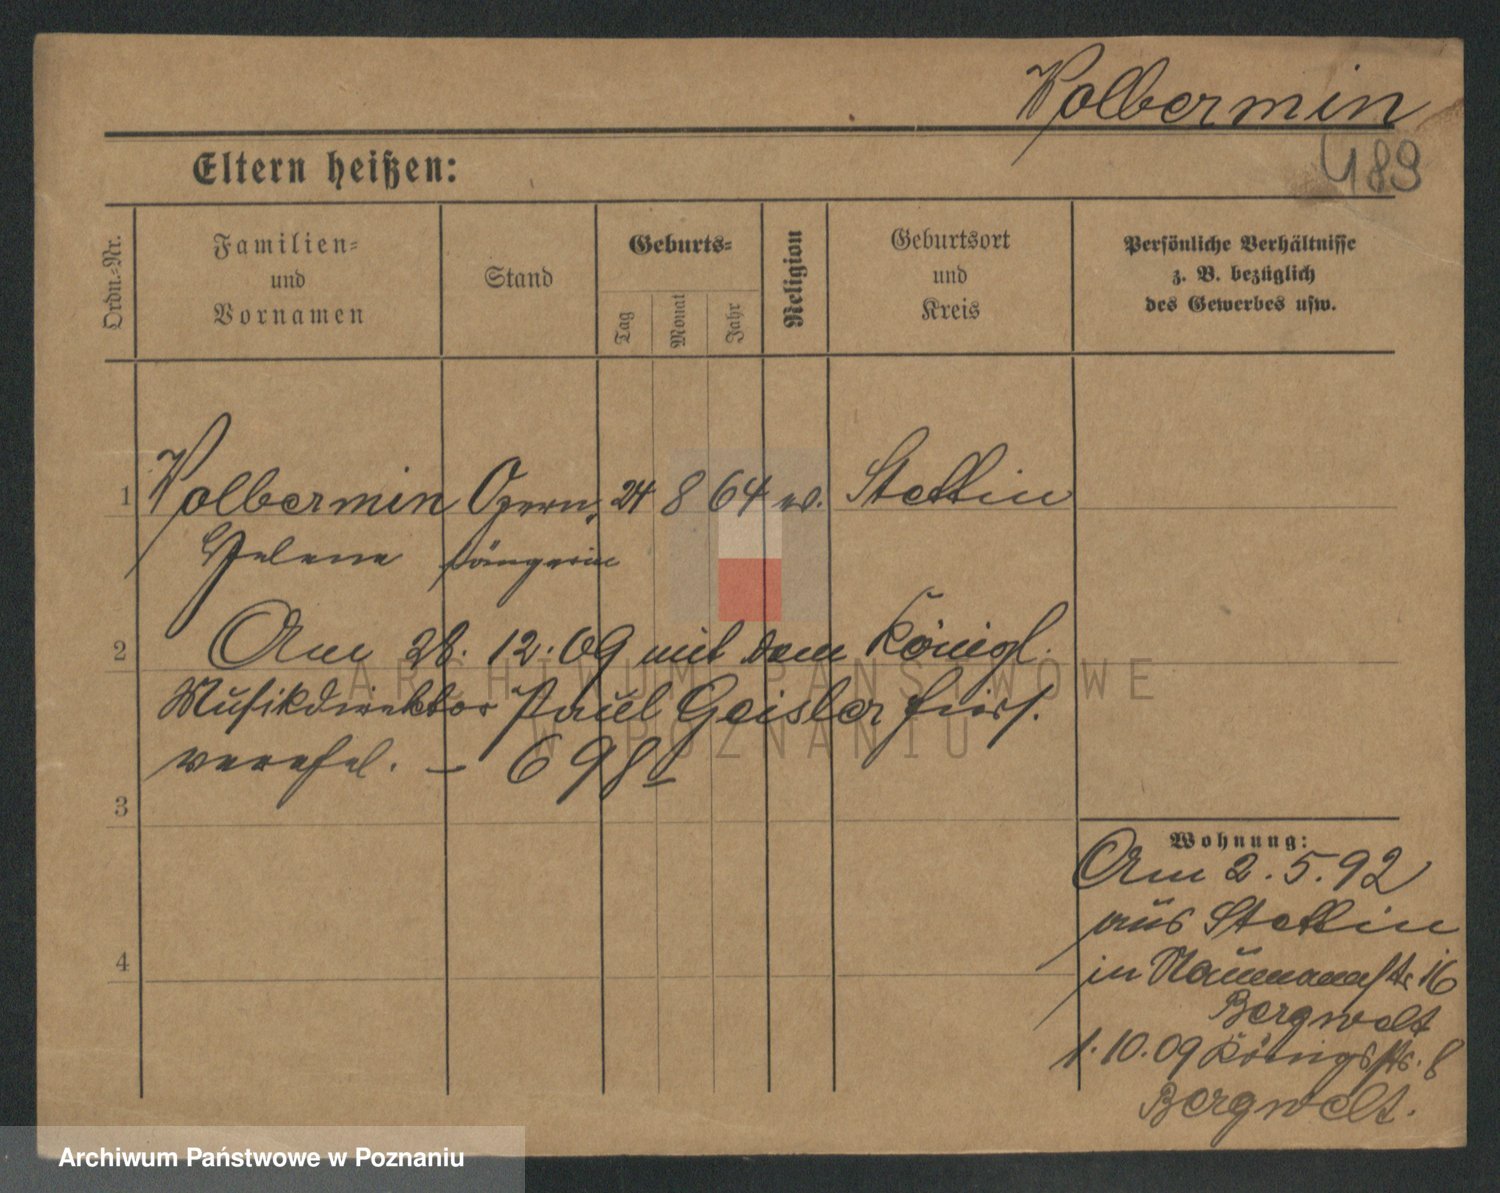 Wolbermin
489
Eltern heißen:
Ordn.-Nr.
Familien-
und
Vornamen
Stand
Geburts-
Tag
Monat
Jahr
Religion
Geburtsort
und
Kreis
Persönliche Verhältnisse
z. B. bezüglich
des Gewerbes usw.
1 Wolbermin Opern, 24 8 64 ev. Stettin
Helene sängerin
2 Am 28. 12. 09 mit dem Königl.
Musikdirektor Paul Geisler hiers.
verehel. — 698
3
4
Wohnung:
Am 2. 5. 92
aus Stettin
in Naumannstr 16
Bergwelt
1. 10. 09 Königsstr. 8
Bergwelt.
ARCHIWUM PAŃSTWOWE
W POZNANIU
Archiwum Państwowe w Poznaniu